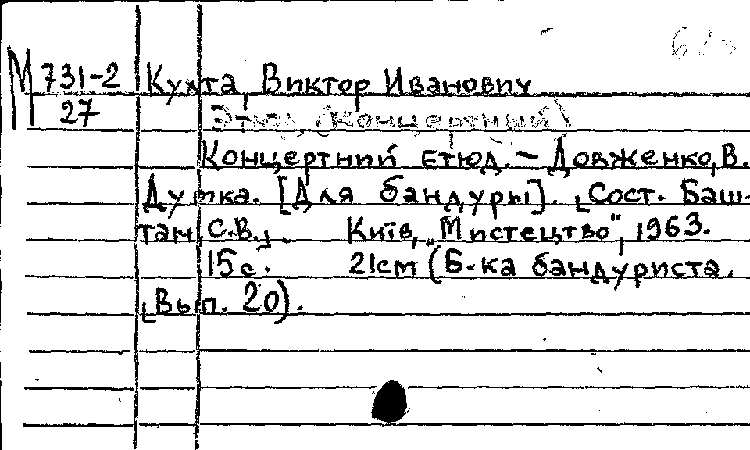 М 731-2 Кухта, Виктор Иванович
27
Этюд (Концертный)
Концертний етюд. – Довженко, В.
Думка. [Для бандуры]. [Сост. Баш-
тан С.В.]. Київ, „Мистецтво", 1963.
15 с. 21см (Б-ка бандуриста.
[Вып. 20).